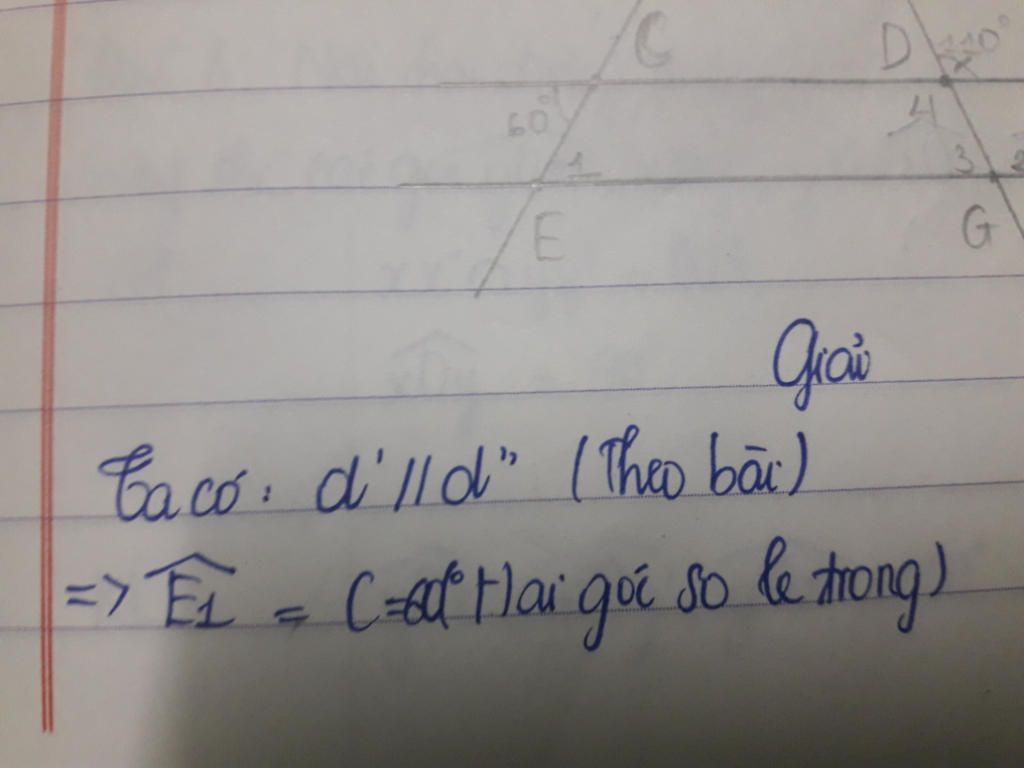 C D 110°
60° 4
1 3 2
E G
Giải
Ta có: d' // d" (Theo bài)
=> E1 = C=60° Hai góc so le trong)